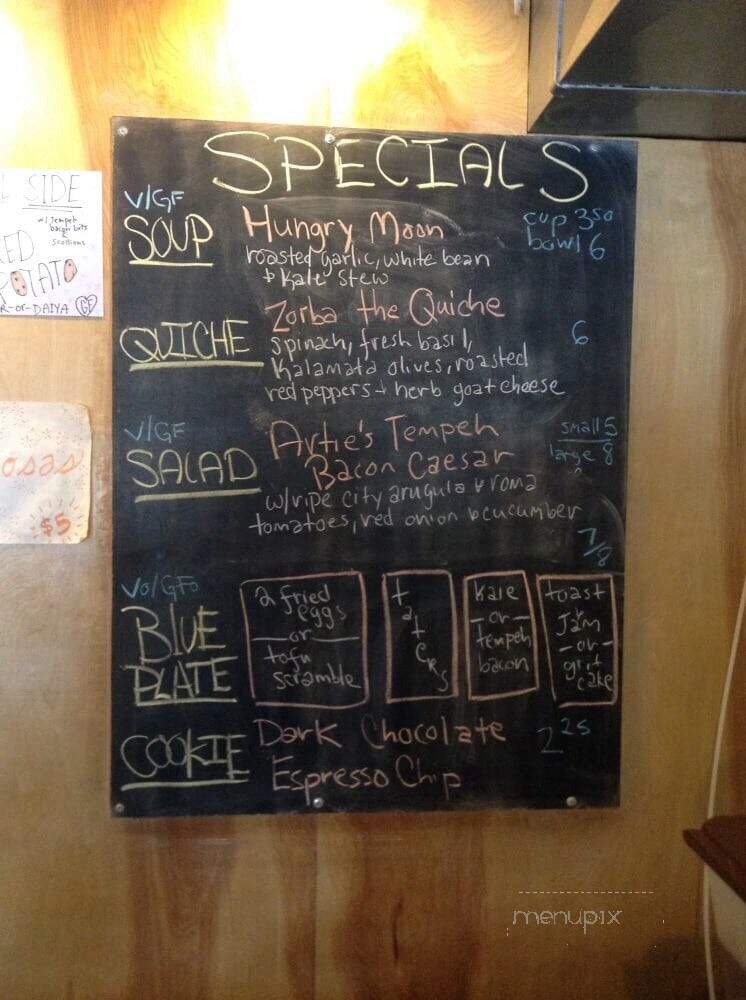 SPECIALS
V/GF
SOUP
Hungry Moon
cup 3 50
bowl 6
roasted garlic, white bean
+ kale stew
QUICHE
Zorba the Quiche
6
spinach, fresh basil,
Kalamata olives, roasted
red peppers + herb goat cheese
V/GF
SALAD
Artie's Tempeh
Bacon Caesar
small 5
large 8
w/ripe city arugula & roma
tomatoes, red onion & cucumber
7/8
Vo/GFo
BLUE
PLATE
2 fried
eggs
—or—
tofu
scramble
taters
kale
—or—
tempeh
bacon
toast
&
Jam
—or—
grit
cake
COOKIE
Dark Chocolate
Espresso Chip
2 25
L SIDE
w/ Tempeh
bacon bits
&
scallions
RED
POTATO
R-or-DAIYA GF
osas
$5
menupix